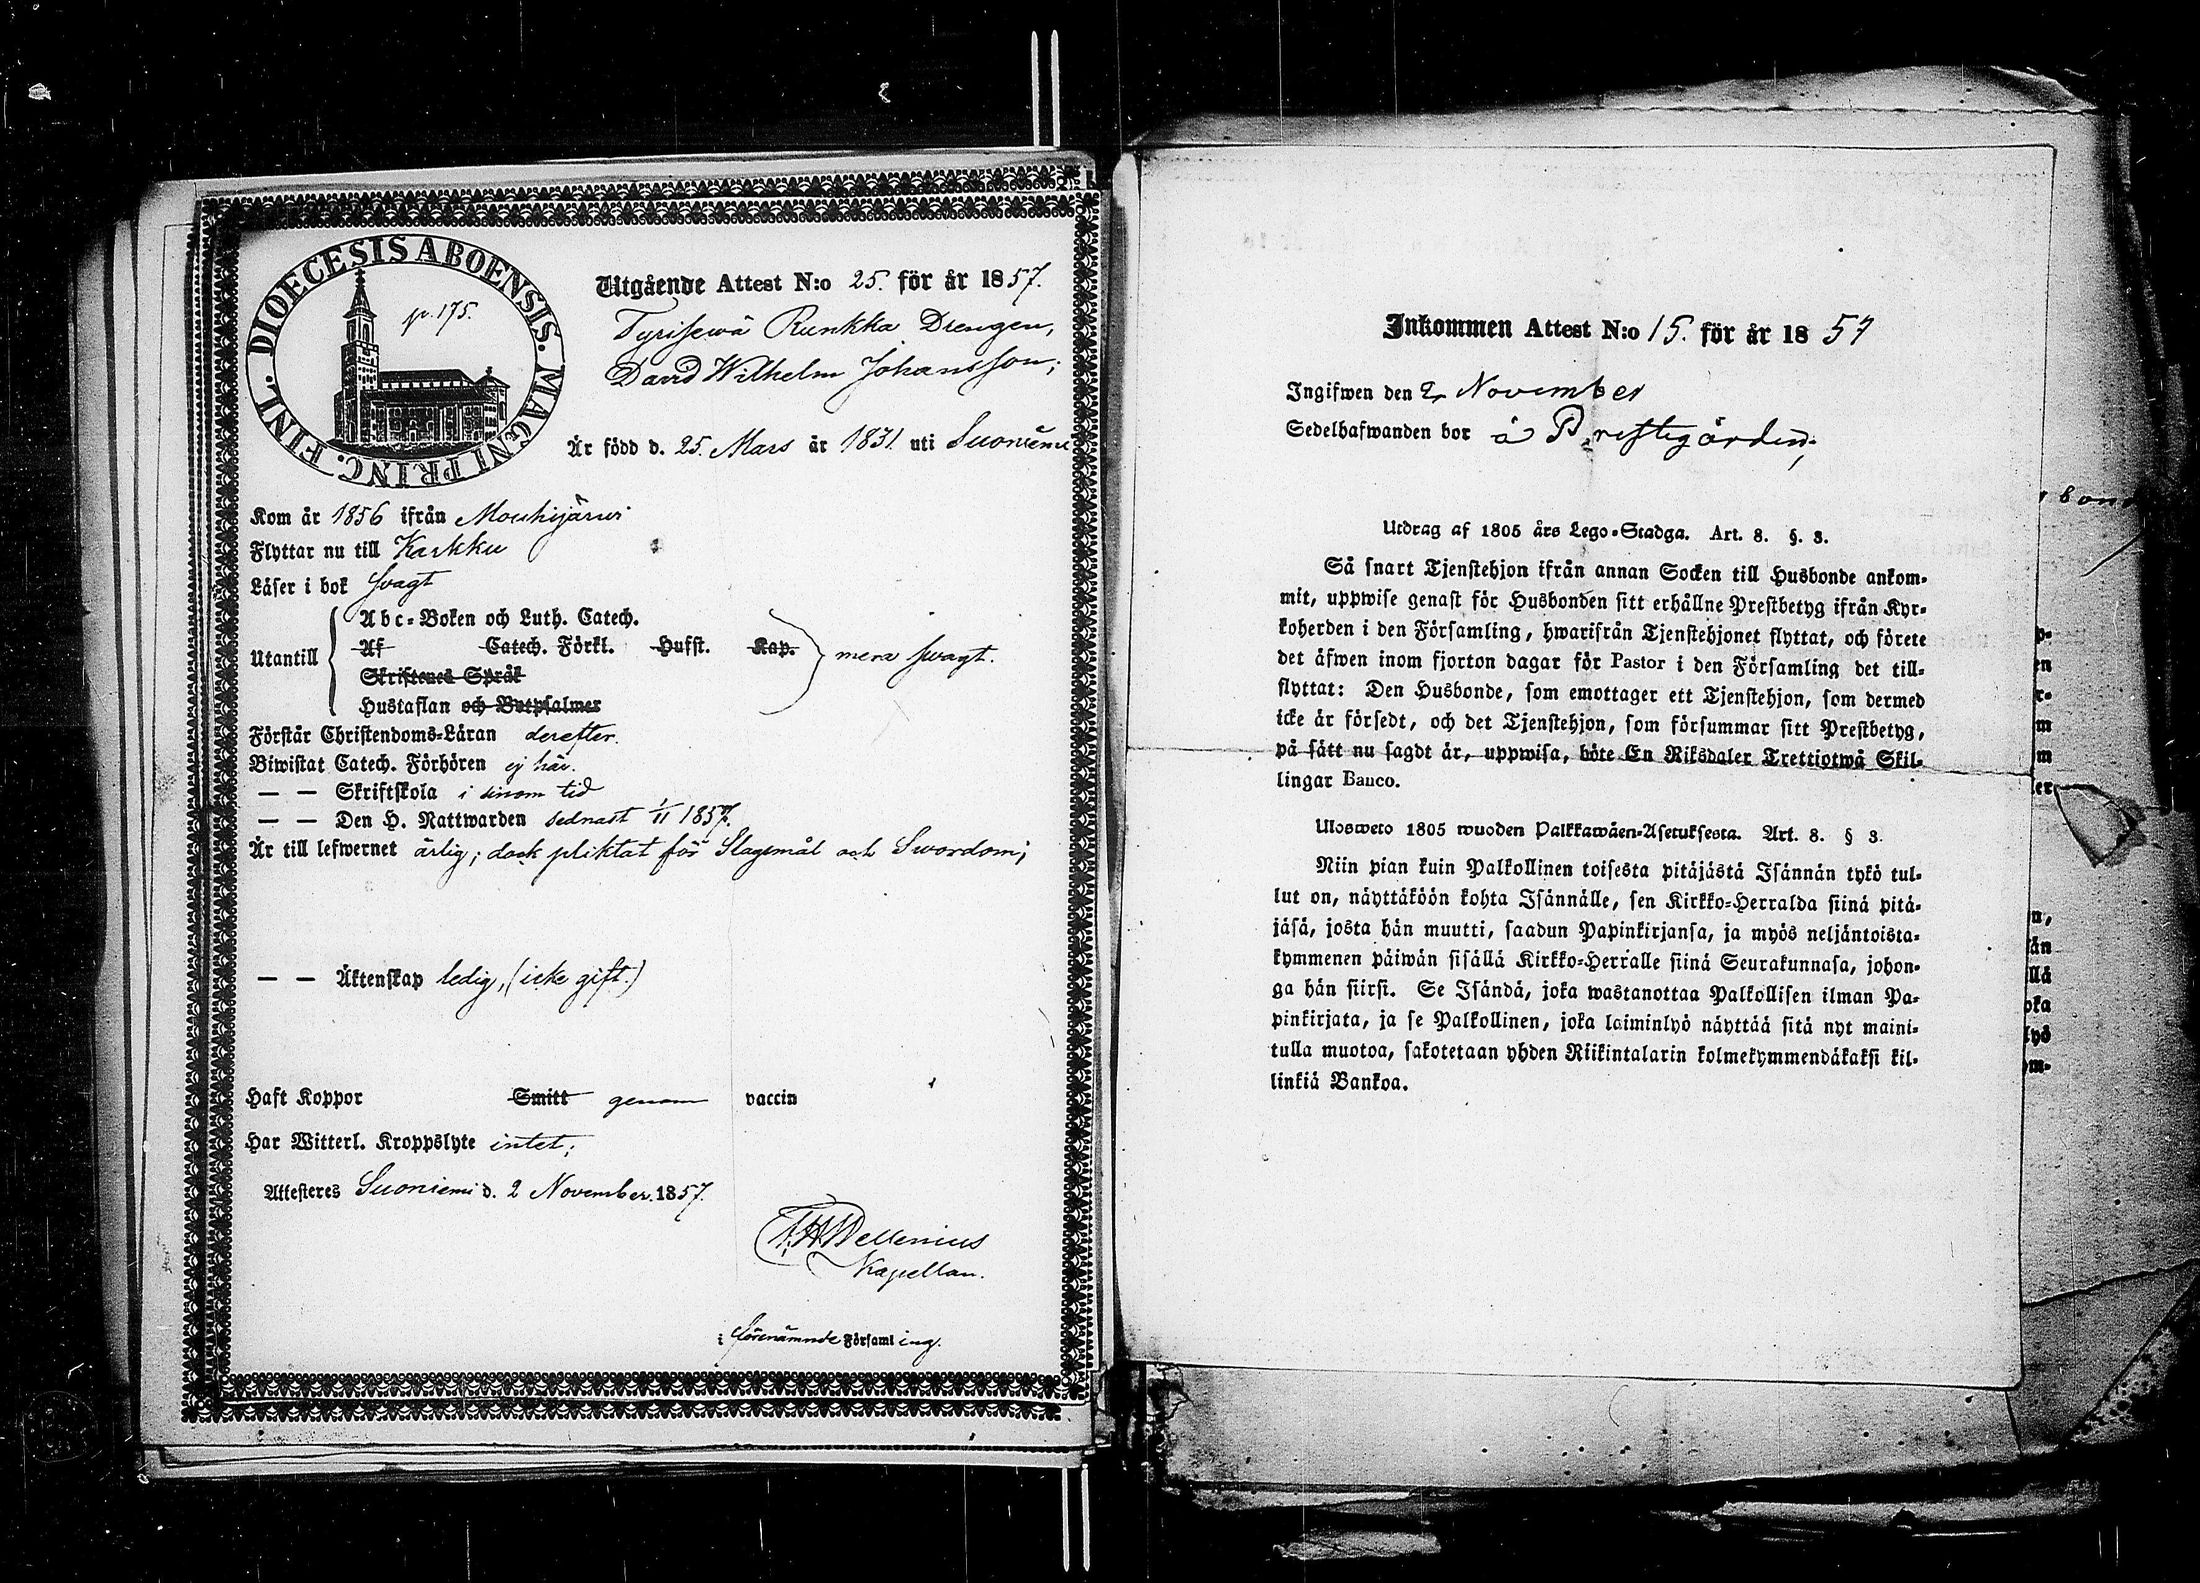 DIOECESIS ABOENSIS. MAGNI PRINC. FINL.
p. 175.
Utgående Attest N:o 25. för år 1857.
Tyrisewä Runkka Drengen,
David Wilhelm Johansson;
Är född d. 25. Mars år 1831. uti Suoniemi
Kom år 1856 ifrån Mouhijärwi
Flyttar nu till Karkku
Läser i bok svagt
Utantill
Abc-Boken och Luth. Catech.
Af Catech. Förkl. Hufst. Kap.
mera svagt.
Skriftenes Språk
Hustaflan och Botpsalmer
Förstår Christendoms-Läran derefter.
Biwistat Catech. Förhören ej här.
— — Skriftskola i sinom tid
— — Den H. Nattwarden sednast 1/11 1857.
Är till lefwernet ärlig; dock pliktat för Slagsmål och Swordom;
— — Äktenskap ledig, (icke gift.)
Haft Koppor Smitt genom vaccin
Har Witterl. Kroppslyte intet;
Attesteres Suoniemi d. 2 November. 1857.
Kapellan.
i förenämnde Församling.
Inkommen Attest N:o 15. för år 1857
Ingifwen den 2 November
Sedelhafwanden bor å Prestegården;
Utdrag af 1805 års Lego-Stadga. Art. 8. §. 3.
Så snart Tjenstehjon ifrån annan Socken till Husbonde ankom-
mit, uppwise genast för Husbonden sitt erhållne Prestbetyg ifrån Kyr-
koherden i den Församling, hwarifrån Tjenstehjonet flyttat, och förete
det äfwen inom fjorton dagar för Pastor i den Församling det till-
flyttat: Den Husbonde, som emottager ett Tjenstehjon, som dermed
icke är försedt, och det Tjenstehjon, som försummar sitt Prestbetyg,
på sätt nu sagdt är, uppwisa, böte En Riksdaler Trettiotwå Skil-
lingar Banco.
Ulosweto 1805 wuoden Palkkawäen-Asetuksesta. Art. 8. § 3.
Niin pian kuin Palkollinen toisesta pitäjästä Isännän tykö tul-
lut on, näyttäköön kohta Isännälle, sen Kirkko-Herralda siinä pitä-
jäsä, josta hän muutti, saadun Papinkirjansa, ja myös neljäntoista-
kymmenen päiwän sisällä Kirkko-Herralle siinä Seurakunnasa, johon-
ga hän siirsi. Se Isändä, joka wastanottaa Palkollisen ilman Pa-
pinkirjata, ja se Palkollinen, joka laiminlyö näyttää sitä nyt maini-
tulla muotoa, sakotetaan yhden Riikintalarin kolmekymmendäkaksi kil-
linkiä Bankoa.